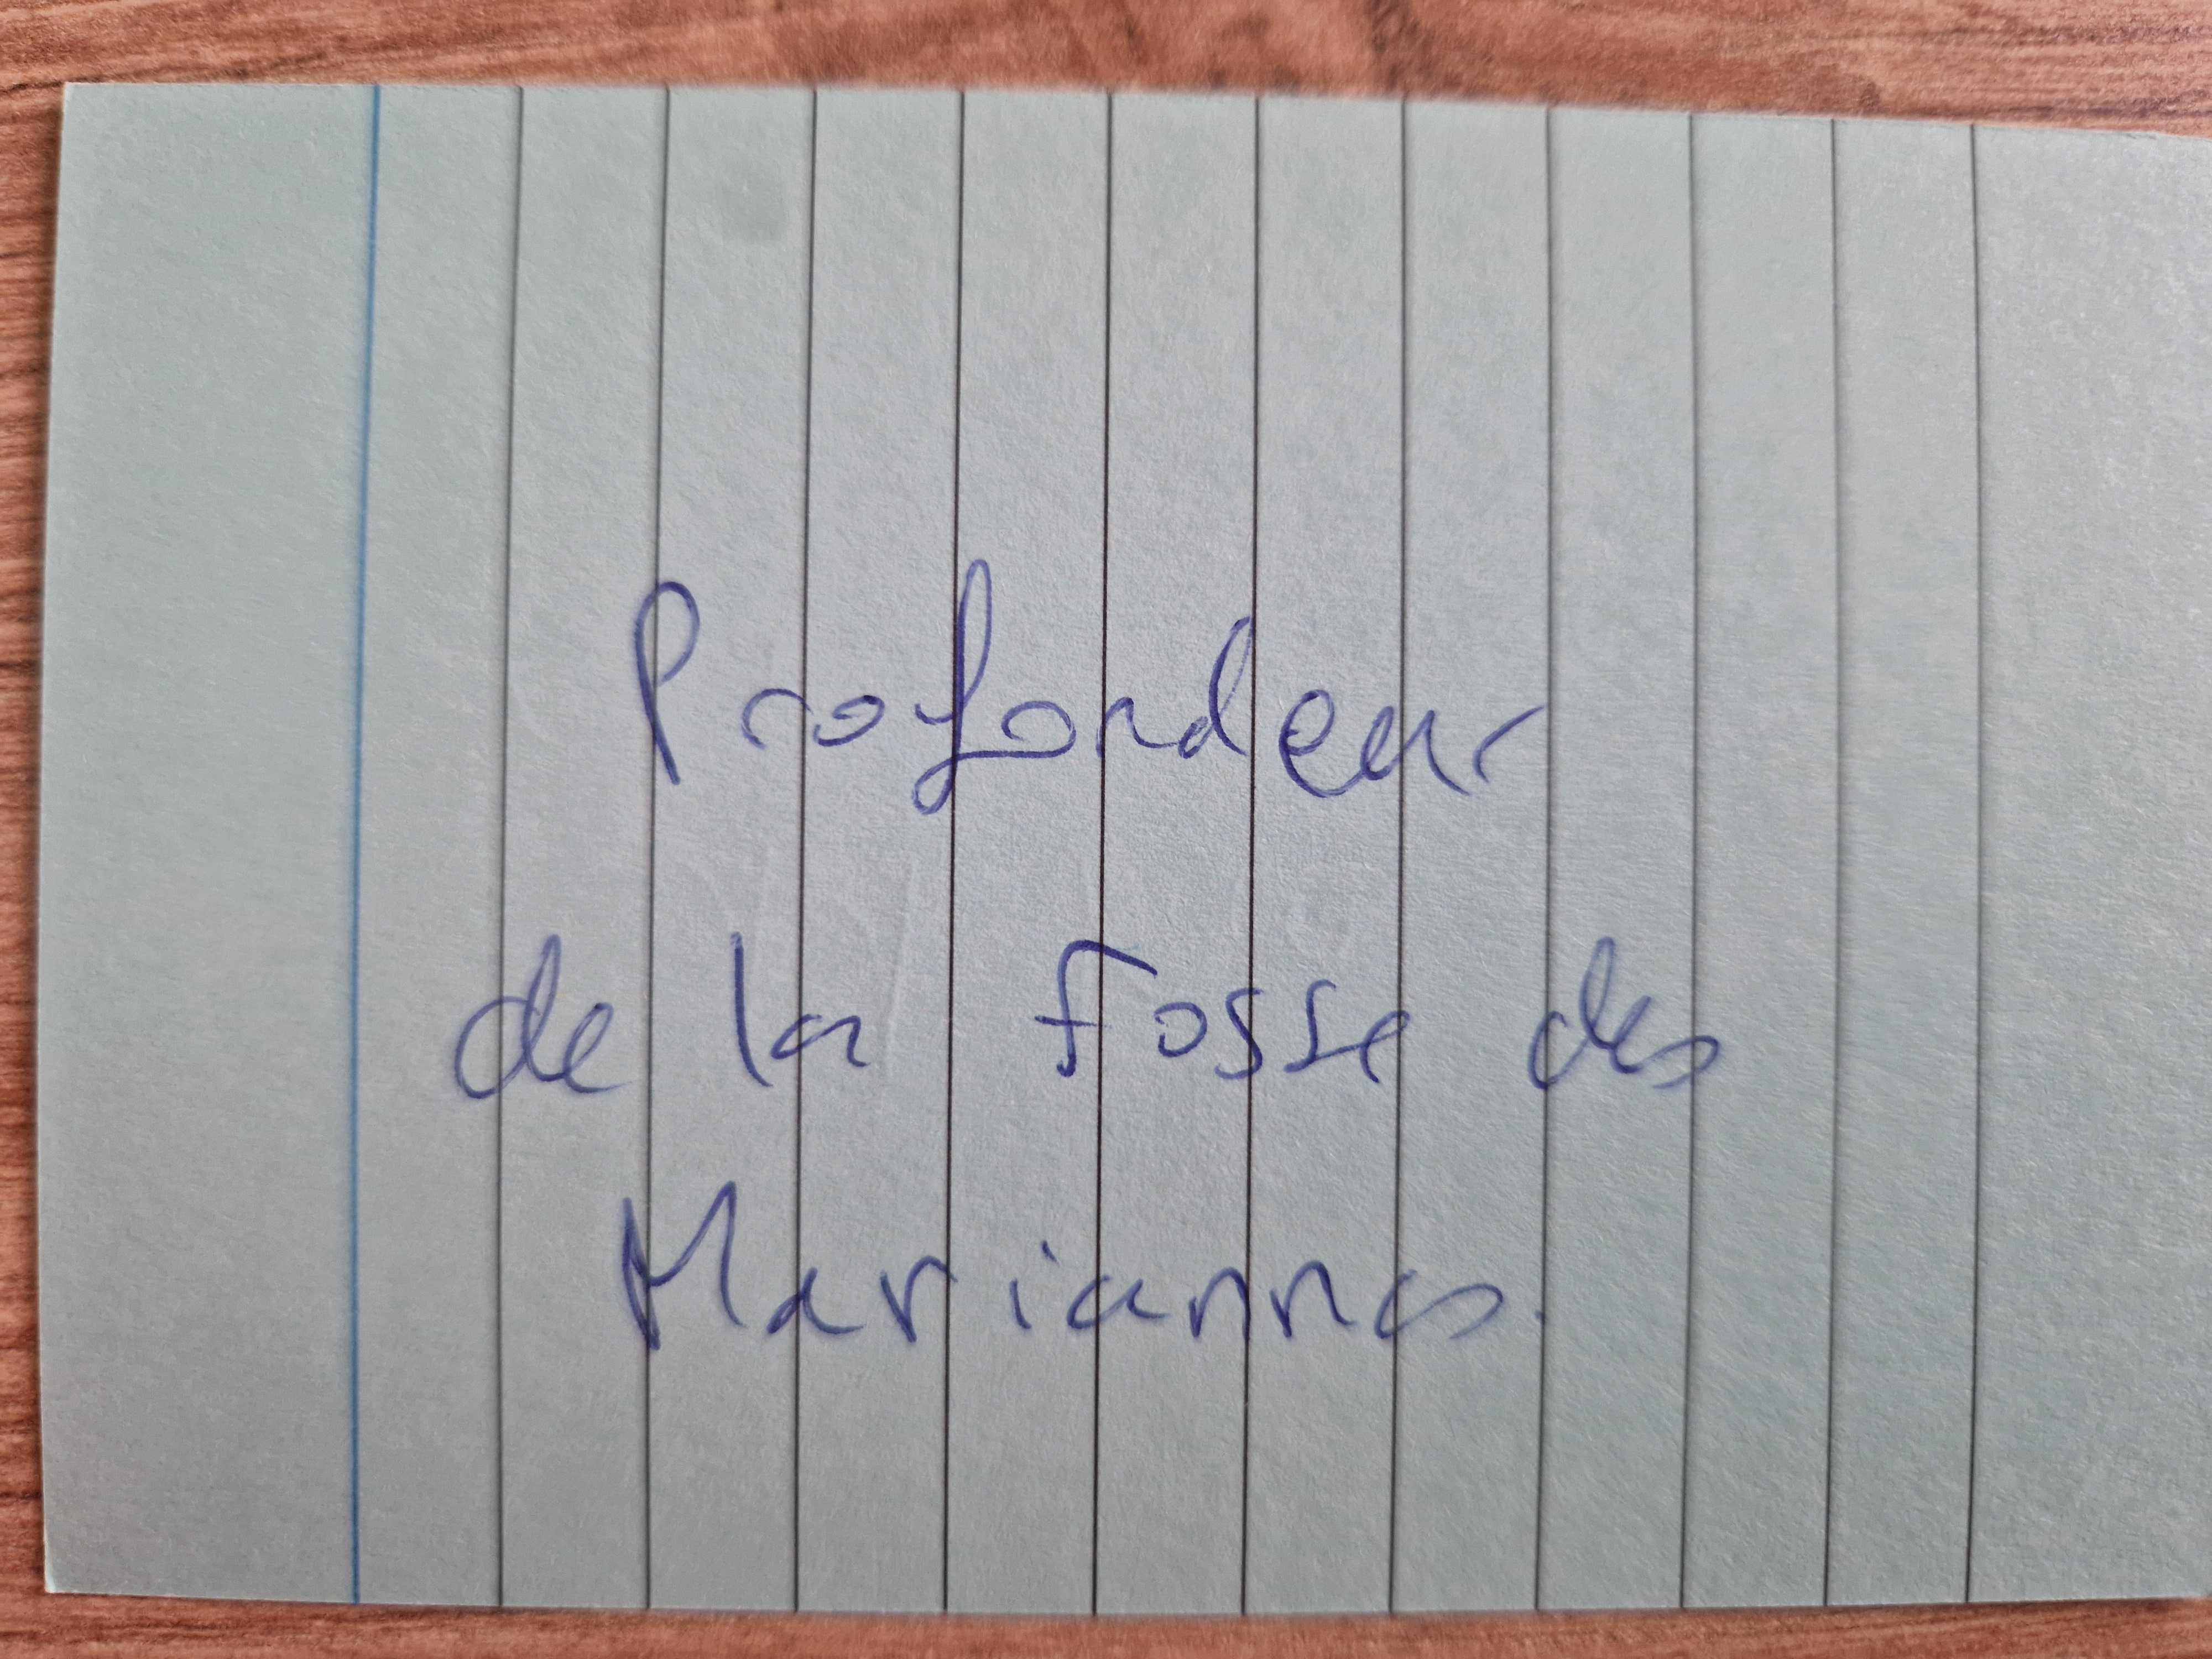 Profondeur
de la Fosse des
Mariannes.